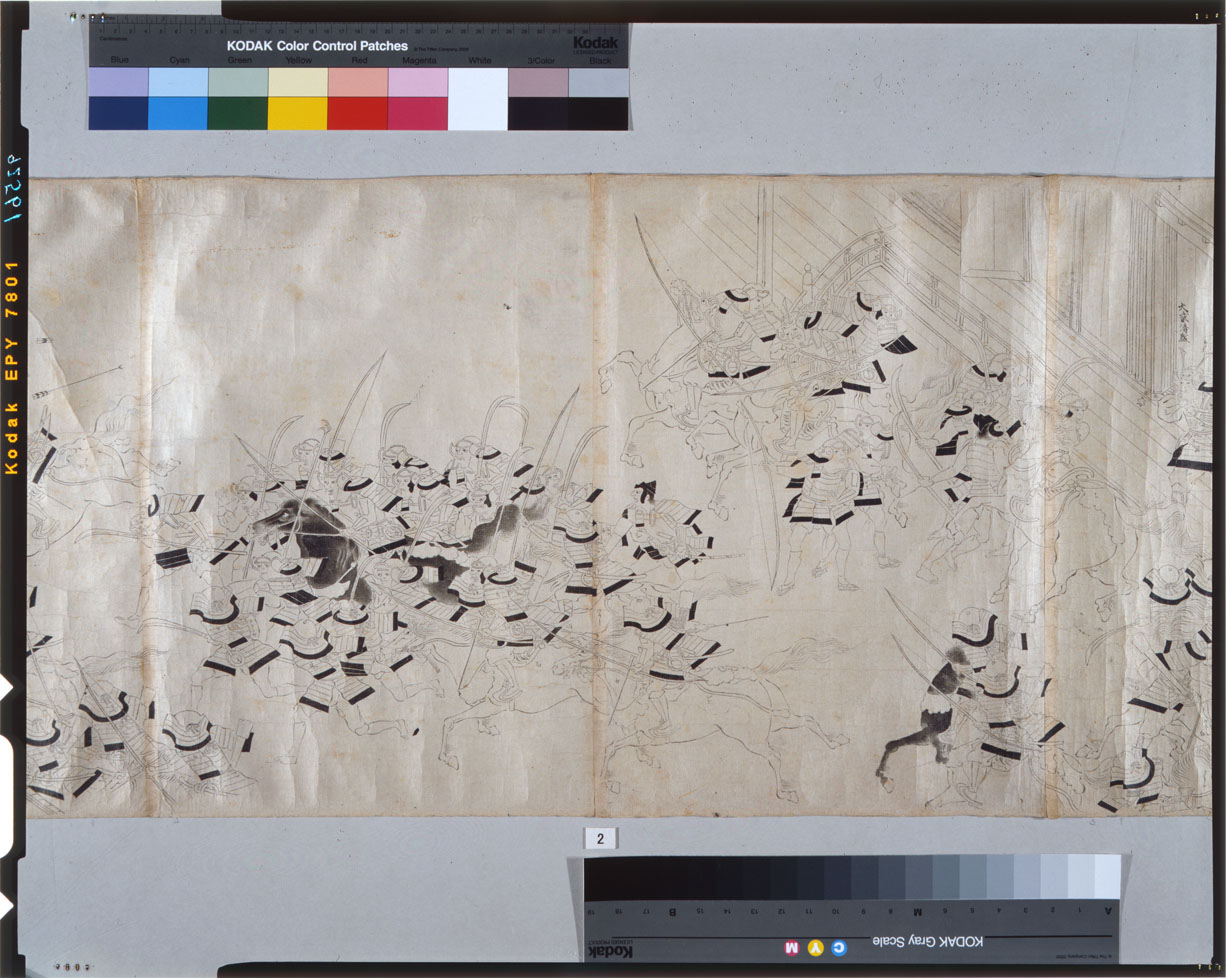 KODAK Color Control Patches
© The Tiffen Company, 2000
Kodak
LICENSED PRODUCT
Centimetres
Blue Cyan Green Yellow Red Magenta White 3/Color Black
92561
Kodak EPY 7801
2
KODAK Gray Scale
C Y M
Kodak
LICENSED PRODUCT
A 1 2 3 4 5 6 M 8 9 10 11 12 13 14 15 B 17 18 19